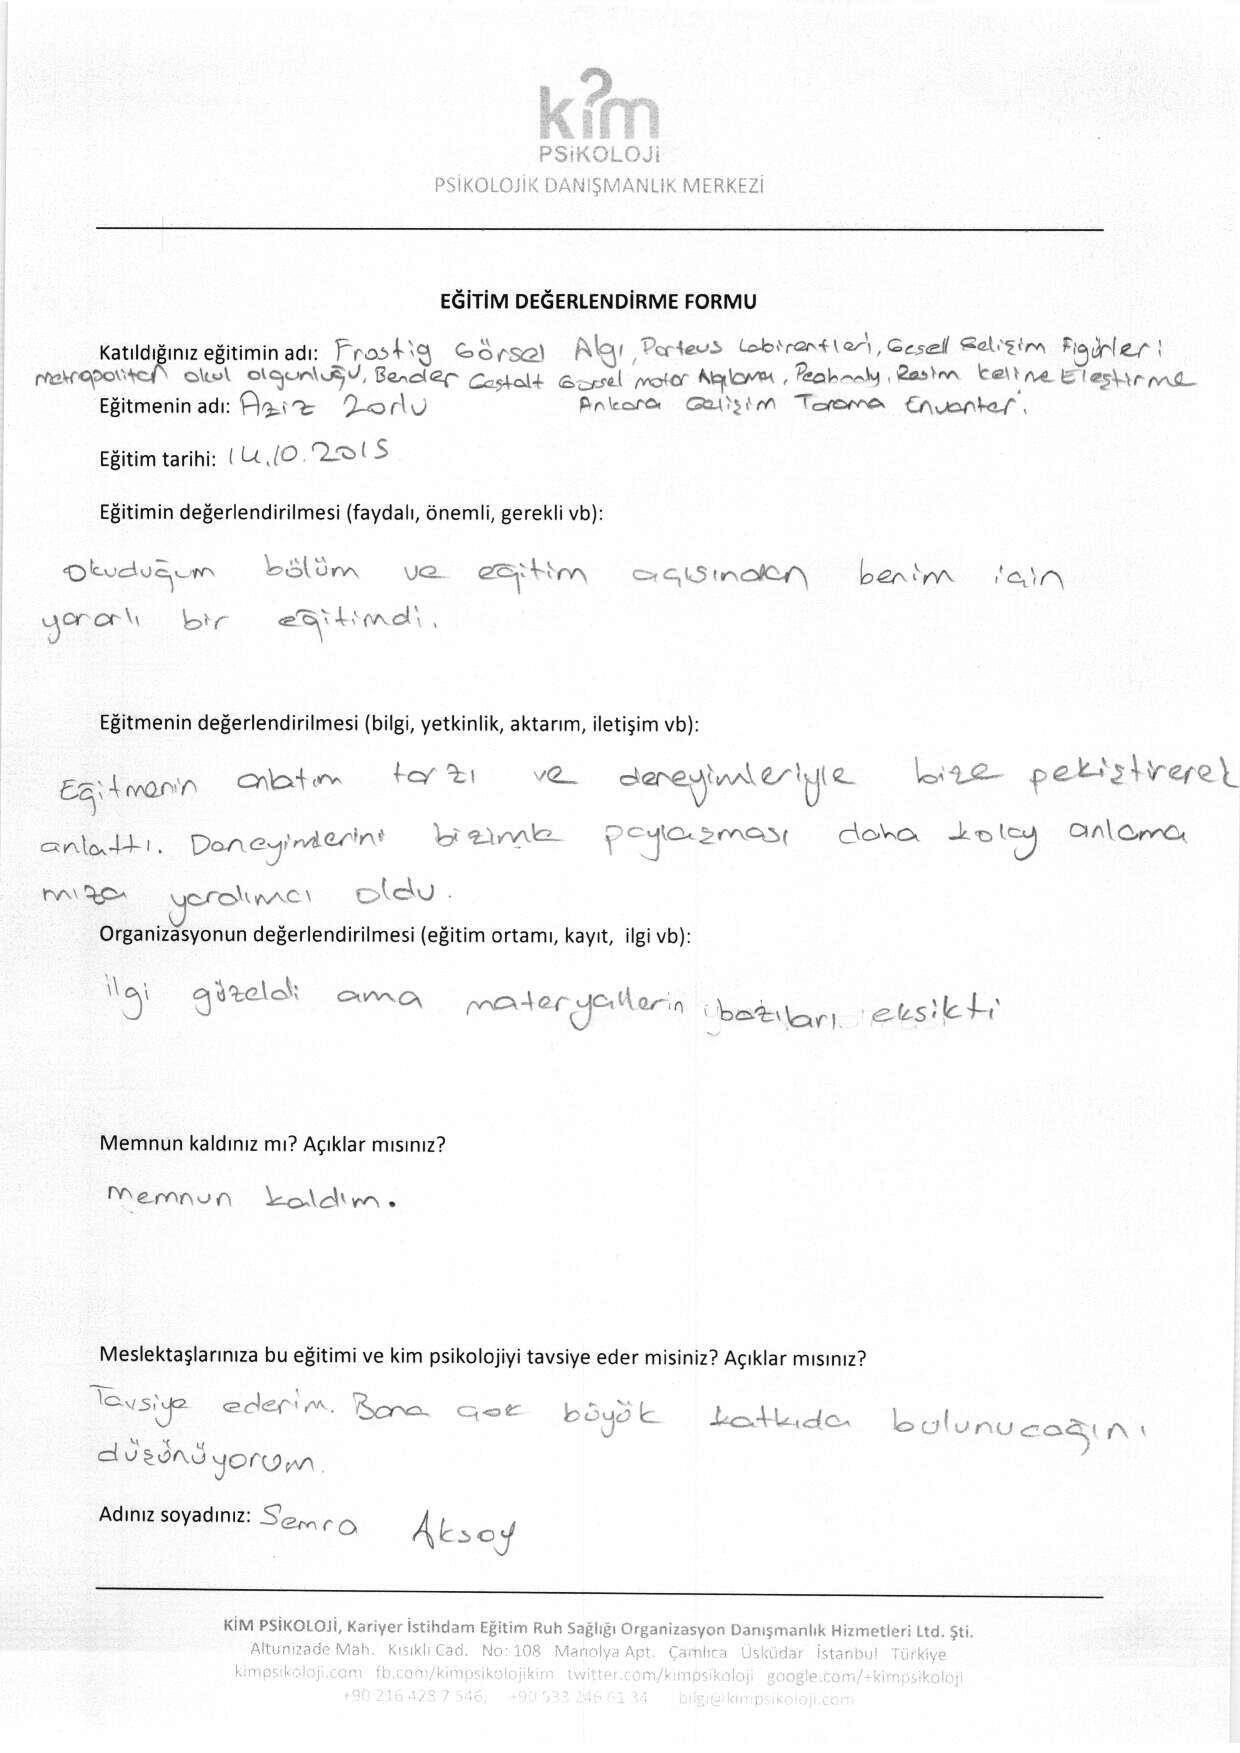 kim
PSİKOLOJİ
PSİKOLOJİK DANIŞMANLIK MERKEZİ
EĞİTİM DEĞERLENDİRME FORMU
Katıldığınız eğitimin adı: Frostig Görsel Algı, Porteus Labirentleri, Gesell Gelişim Figürleri
Metropoliten okul olgunluğu, Bender Gestalt Görsel motor Algılama, Peabody, Resim kelime Eleştirme
Eğitmenin adı: Aziz Zorlu Ankara Gelişim Tarama Envanteri
Eğitim tarihi: 14.10.2015
Eğitimin değerlendirilmesi (faydalı, önemli, gerekli vb):
Okuduğum bölüm ve eğitim açısından benim için
yararlı bir eğitimdi.
Eğitmenin değerlendirilmesi (bilgi, yetkinlik, aktarım, iletişim vb):
Eğitmenin anlatım tarzı ve deneyimleriyle bize pekiştirerek
anlattı. Deneyimlerini bizimle paylaşması daha kolay anlama
mıza yardımcı oldu.
Organizasyonun değerlendirilmesi (eğitim ortamı, kayıt, ilgi vb):
ilgi güzeldi ama materyallerin bazıları eksikti
Memnun kaldınız mı? Açıklar mısınız?
Memnun kaldım.
Meslektaşlarınıza bu eğitimi ve kim psikolojiyi tavsiye eder misiniz? Açıklar mısınız?
Tavsiye ederim. Bana çok büyük katkıda bulunucağını
düşünüyorum.
Adınız soyadınız: Semra Aksoy
KİM PSİKOLOJİ, Kariyer İstihdam Eğitim Ruh Sağlığı Organizasyon Danışmanlık Hizmetleri Ltd. Şti.
Altunizade Mah. Kısıklı Cad. No: 108 Manolya Apt. Çamlıca Üsküdar İstanbul Türkiye
kimpsikoloji.com fb.com/kimpsikolojikim twitter.com/kimpsikoloji google.com/+kimpsikoloji
+90 216 428 7 546, +90 533 246 61 34 bilgi@kimpsikoloji.com